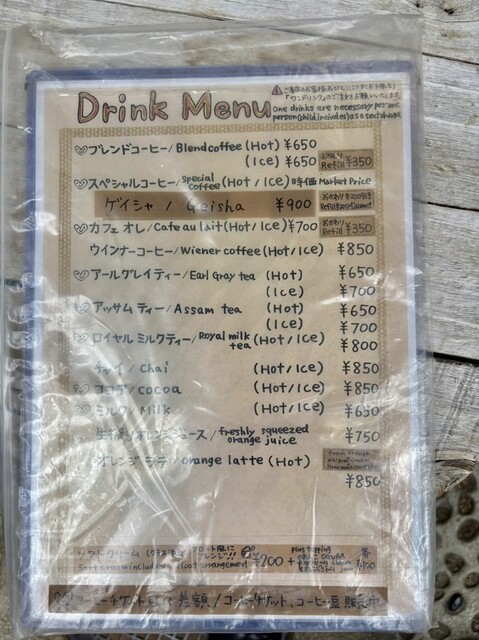 Drink Menu
「ワンドリンク」のご注文をお願いいたします。
One drinks are necessary per one
person (child includes) as a seat charge.
ブレンドコーヒー/Blend coffee (Hot) ¥650
(Ice) ¥650 おかわり Refill ¥350
スペシャルコーヒー/special coffee (Hot/Ice) 時価 Market Price
ゲイシャ / Geisha ¥900 おかわり ¥200引き
カフェオレ/Cafe au lait (Hot/Ice) ¥700 おかわり Refill ¥350
ウインナーコーヒー/Wiener coffee (Hot/Ice) ¥850
アールグレイティー/Earl Gray tea (Hot) ¥650
(Ice) ¥700
アッサムティー/Assam tea (Hot) ¥650
(Ice) ¥700
ロイヤルミルクティー/Royal milk tea (Hot/Ice) ¥800
チャイ/chai (Hot/Ice) ¥850
ココア/cocoa (Hot/Ice) ¥850
ミルク/Milk (Hot/Ice) ¥650
生搾りオレンジジュース/freshly squeezed orange juice ¥750
オレンジラテ/orange latte (Hot)
¥850
ソフトクリーム
フロート風に アレンジ!! ¥200 +
plus topping
コーヒーチケット
差額 / コーヒーチケット、コーヒー豆 販売中